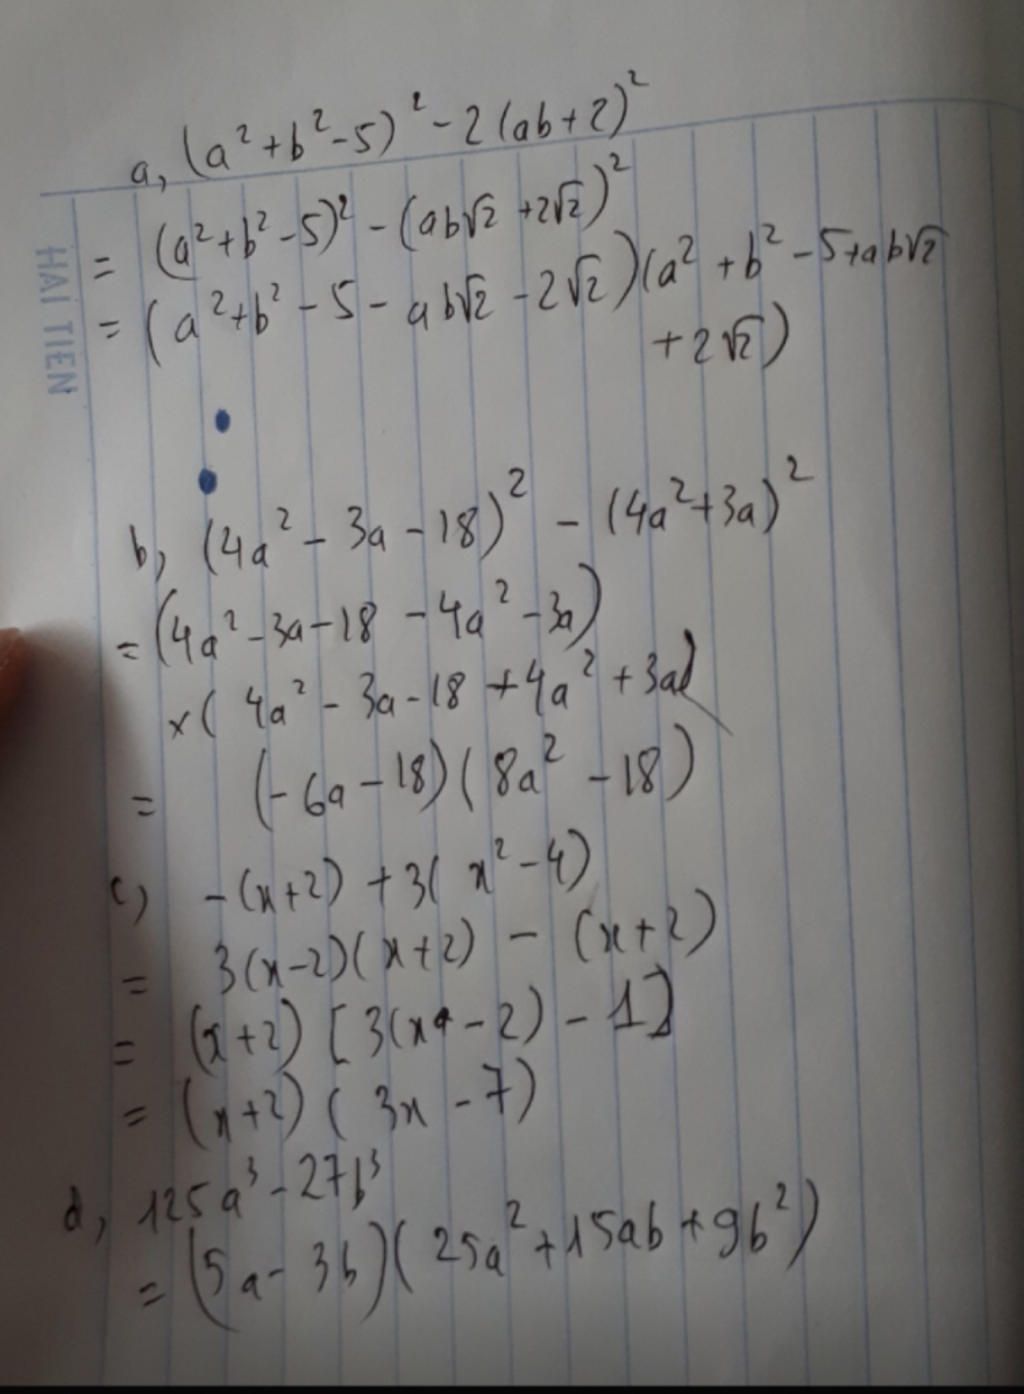 a, (a²+b²-5)² - 2(ab+2)²
= (a²+b²-5)² - (ab√2 +2√2)²
= (a²+b² - 5 - ab√2 - 2√2)(a² + b² - 5+ab√2
+ 2√2)
HẢI TIẾN
b, (4a² - 3a - 18)² - (4a²+3a)²
= (4a² -3a-18 - 4a² - 3a)
x( 4a² - 3a-18 +4a² + 3a)
= (-6a - 18)( 8a² - 18)
c) -(x+2) +3( x² - 4)
= 3(x-2)(x+2) - (x+2)
= (x+2) [3(x - 2) - 1]
= (x+2) ( 3x - 7)
d, 125a³ - 27b³
= (5a - 3b)( 25a² +15ab + 9b²)